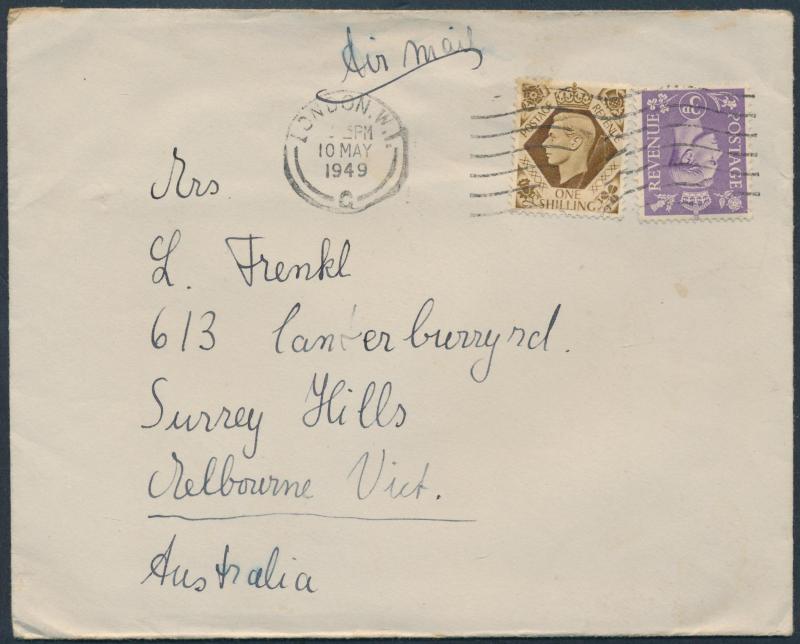 Air mail
LONDON. W.1.
PM
10 MAY
1949
POSTAGE REVENUE
ONE
SHILLING
REVENUE
POSTAGE
3D
Mrs
L. Frenkl
613 Canterburry rd.
Surrey Hills
Melbourne Vict.
Australia